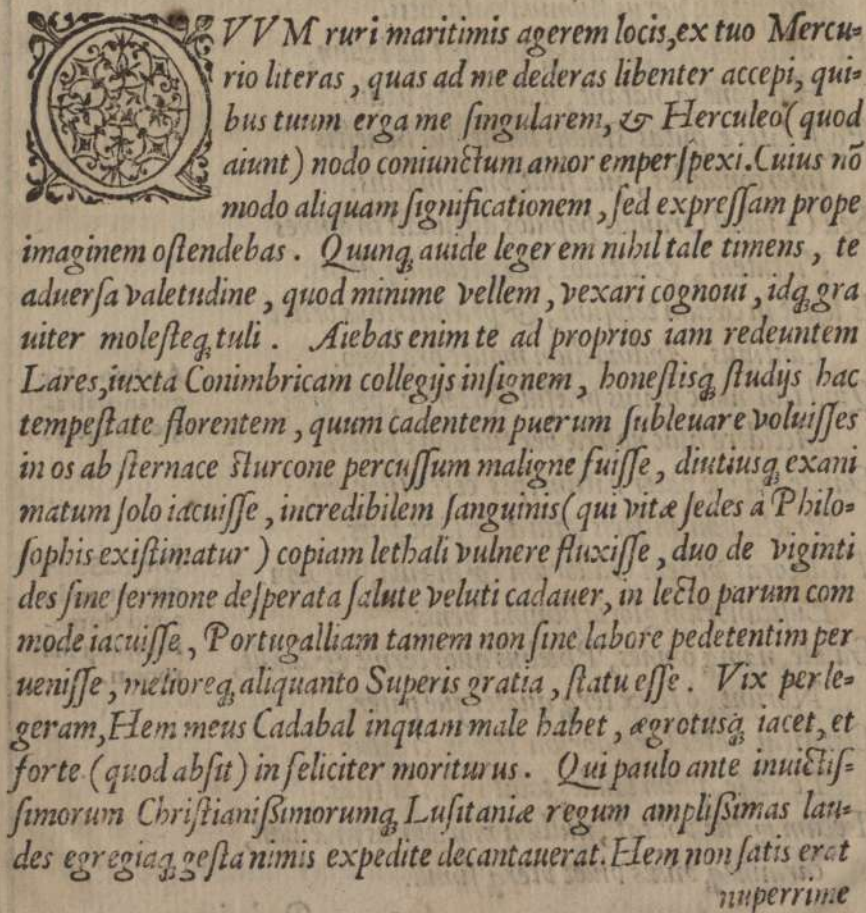 QVVM ruri maritimis agerem locis,ex tuo Mercu=
rio literas , quas ad me dederas libenter accepi, qui=
bus tuum erga me ſingularem, & Herculeo(quod
aiunt) nodo coniunctum amor emperſpexi.Cuius nõ
modo aliquam ſignificationem , ſed expreſſam prope
imaginem oſtendebas . Quunqꝫ auide leger em nihil tale timens , te
aduerſa valetudine , quod minime vellem , vexari cognoui , idqꝫ gra
uiter moleſteqꝫ tuli . Aiebas enim te ad proprios iam redeuntem
Lares,iuxta Conimbricam collegijs inſignem , honeſtisqꝫ ſtudijs hac
tempeſtate florentem , quum cadentem puerum ſubleuare voluiſſes
in os ab ſternace ſturcone percuſſum maligne fuiſſe , diutiusqꝫ exani
matum ſolo iacuiſſe , incredibilem ſanguinis(qui vitæ ſedes a Philo=
ſophis exiſtimatur ) copiam lethali vulnere fluxiſſe , duo de viginti
des ſine ſermone deſperata ſalute veluti cadauer, in lecto parum com
mode iacuiſſe , Portugalliam tamem non ſine labore pedetentim per
ueniſſe , melioreqꝫ aliquanto Superis gratia , ſtatu eſſe . Vix perle=
geram,Hem meus Cadabal inquam male habet , ægrotusqꝫ iacet, et
forte (quod abſit) in feliciter moriturus . Qui paulo ante inuictiſ=
ſimorum Chriſtianiſſimorumqꝫ Luſitaniæ regum ampliſſimas lau=
des egregiaqꝫ geſta nimis expedite decantauerat. Hem non ſatis erat
nuperrime